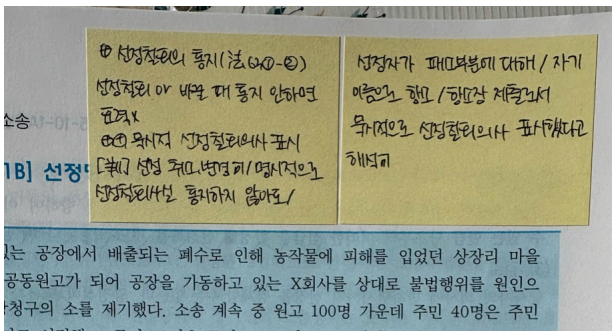 ⊕ 선정철회의 통지(法 63①-②)
선정철회 or 바꿀 때 통지 안하면
효력x
⊕⊕ 묵시적 선정철회의사 표시
[判] 선정 취소,변경이/명시적으로
선정철회사실 통지하지 않아도/
선정자가 패소부분에 대해/자기
이름으로 항소/항소장 제출로서
묵시적으로 선정철회의사 표시했다고
해석가
소송
1B] 선정
있는 공장에서 배출되는 폐수로 인해 농작물에 피해를 입었던 상장리 마을
공동원고가 되어 공장을 가동하고 있는 X회사를 상대로 불법행위를 원인으
청구의 소를 제기했다. 소송 계속 중 원고 100명 가운데 주민 40명은 주민